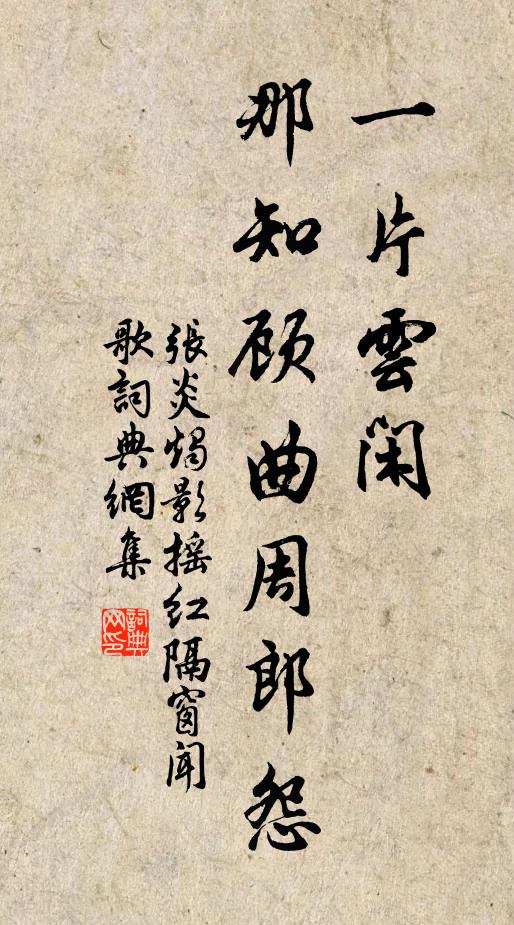 一片雲閑
那知顾曲周郎怨
張炎燭影摇红隔窗聞
歌詞典網集
詞典
网印